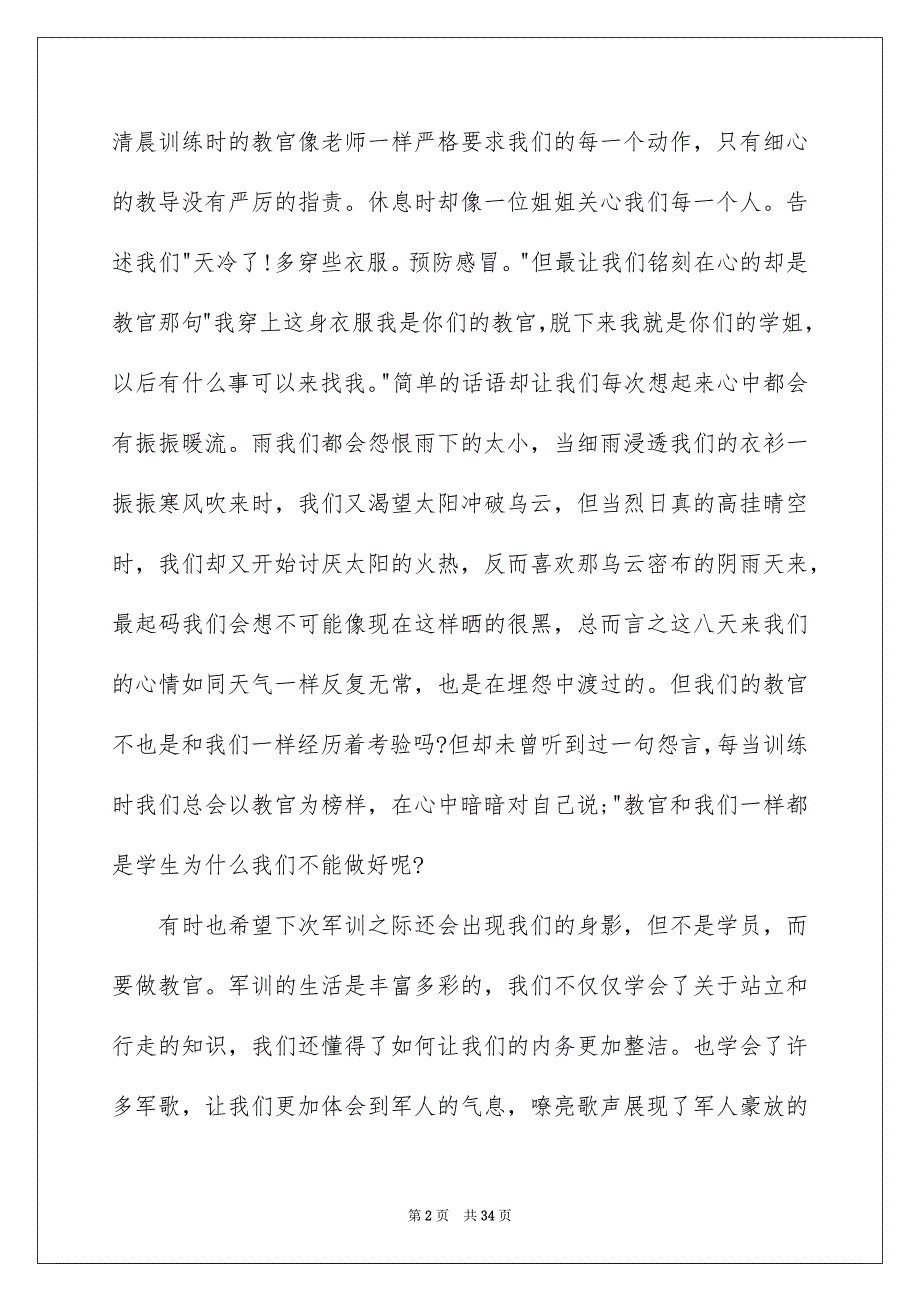 清晨训练时的教官像老师一样严格要求我们的每一个动作，只有细心
的教导没有严厉的指责。休息时却像一位姐姐关心我们每一个人。告
述我们"天冷了!多穿些衣服。预防感冒。"但最让我们铭刻在心的却是
教官那句"我穿上这身衣服我是你们的教官,脱下来我就是你们的学姐,
以后有什么事可以来找我。"简单的话语却让我们每次想起来心中都会
有振振暖流。雨我们都会怨恨雨下的太小，当细雨浸透我们的衣衫一
振振寒风吹来时，我们又渴望太阳冲破乌云，但当烈日真的高挂晴空
时，我们却又开始讨厌太阳的火热，反而喜欢那乌云密布的阴雨天来，
最起码我们会想不可能像现在这样晒的很黑，总而言之这八天来我们
的心情如同天气一样反复无常，也是在埋怨中渡过的。但我们的教官
不也是和我们一样经历着考验吗?但却未曾听到过一句怨言,每当训练
时我们总会以教官为榜样，在心中暗暗对自己说;"教官和我们一样都
是学生为什么我们不能做好呢?
有时也希望下次军训之际还会出现我们的身影，但不是学员，而
要做教官。军训的生活是丰富多彩的，我们不仅仅学会了关于站立和
行走的知识，我们还懂得了如何让我们的内务更加整洁。也学会了许
多军歌，让我们更加体会到军人的气息，嘹亮歌声展现了军人豪放的
第 2 页 共 34 页